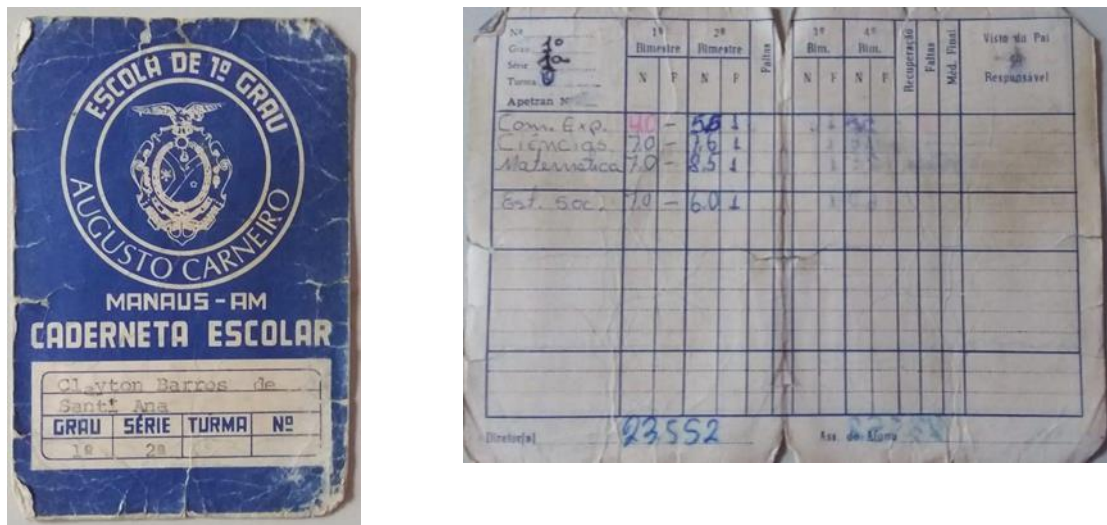 ESCOLA DE 1º GRAU
AUGUSTO CARNEIRO
MANAUS-AM
CADERNETA ESCOLAR
Clayton Barros de
Santi Ana
GRAU SÉRIE TURMA Nº
1º 2ª
Nº
Grau 1º
Série
Turma
Apetran Nº
1º Bimestre 2º Bimestre Faltas 3º Bim. 4º Bim. Recuperação Faltas Méd. Final Visto do Pai
Responsável
N F N F N F N F
Com. Exp. 4.0 - 5.5 1
Ciências 7.0 - 7.6 1
Matemática 7.0 - 8.5 1
Est. Soc. 7.0 - 6.0 1
Diretor(a) 23552 Ass. do Aluno